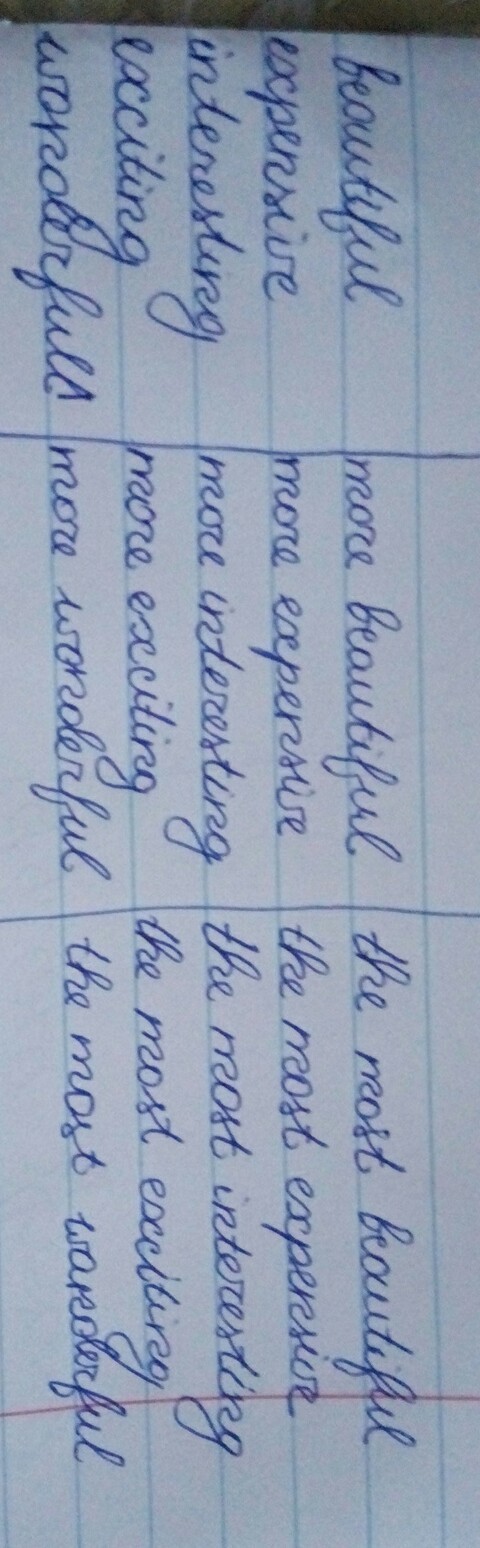 beautiful more beautiful the most beautiful
expensive more expensive the most expensive
interesting more interesting the most interesting
exciting more exciting the most exciting
wonderfull more wonderful the most wanderful